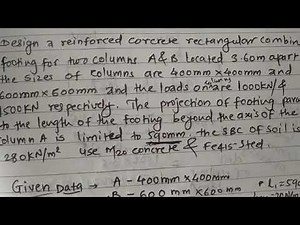 Design a reinforced concrete rectangular combin
footing for two columns A&B located 3.60m apart
the sizes of columns are 400mm×400mm and
columns
600mm×600mm and the loads on are 1000KN &
1500KN respectively. The projection of footing para
to the length of the footing beyond the axis of the
column A is limited to 590mm. the SBC of soil is
280KN/m² use M20 concrete & Fe415-Steel.
Given Data → A - 400mm×400mm
B - 600mm×600mm